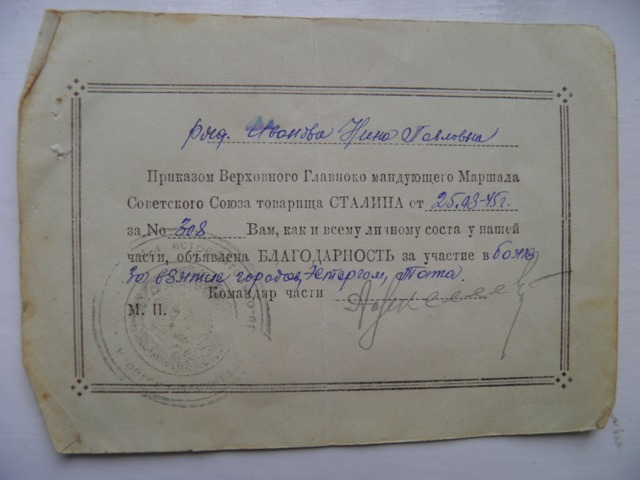 ряд. Иванова Нина Павловна
Приказом Верховного Главноко мандующего Маршала
Советского Союза товарища СТАЛИНА от 25.03-45г.
за No 308 Вам, как и всему личному соста у нашей
части, объявлена БЛАГОДАРНОСТЬ за участие в боях
за взятие городов, Эстергом, Тата.
Командир части
М. П.